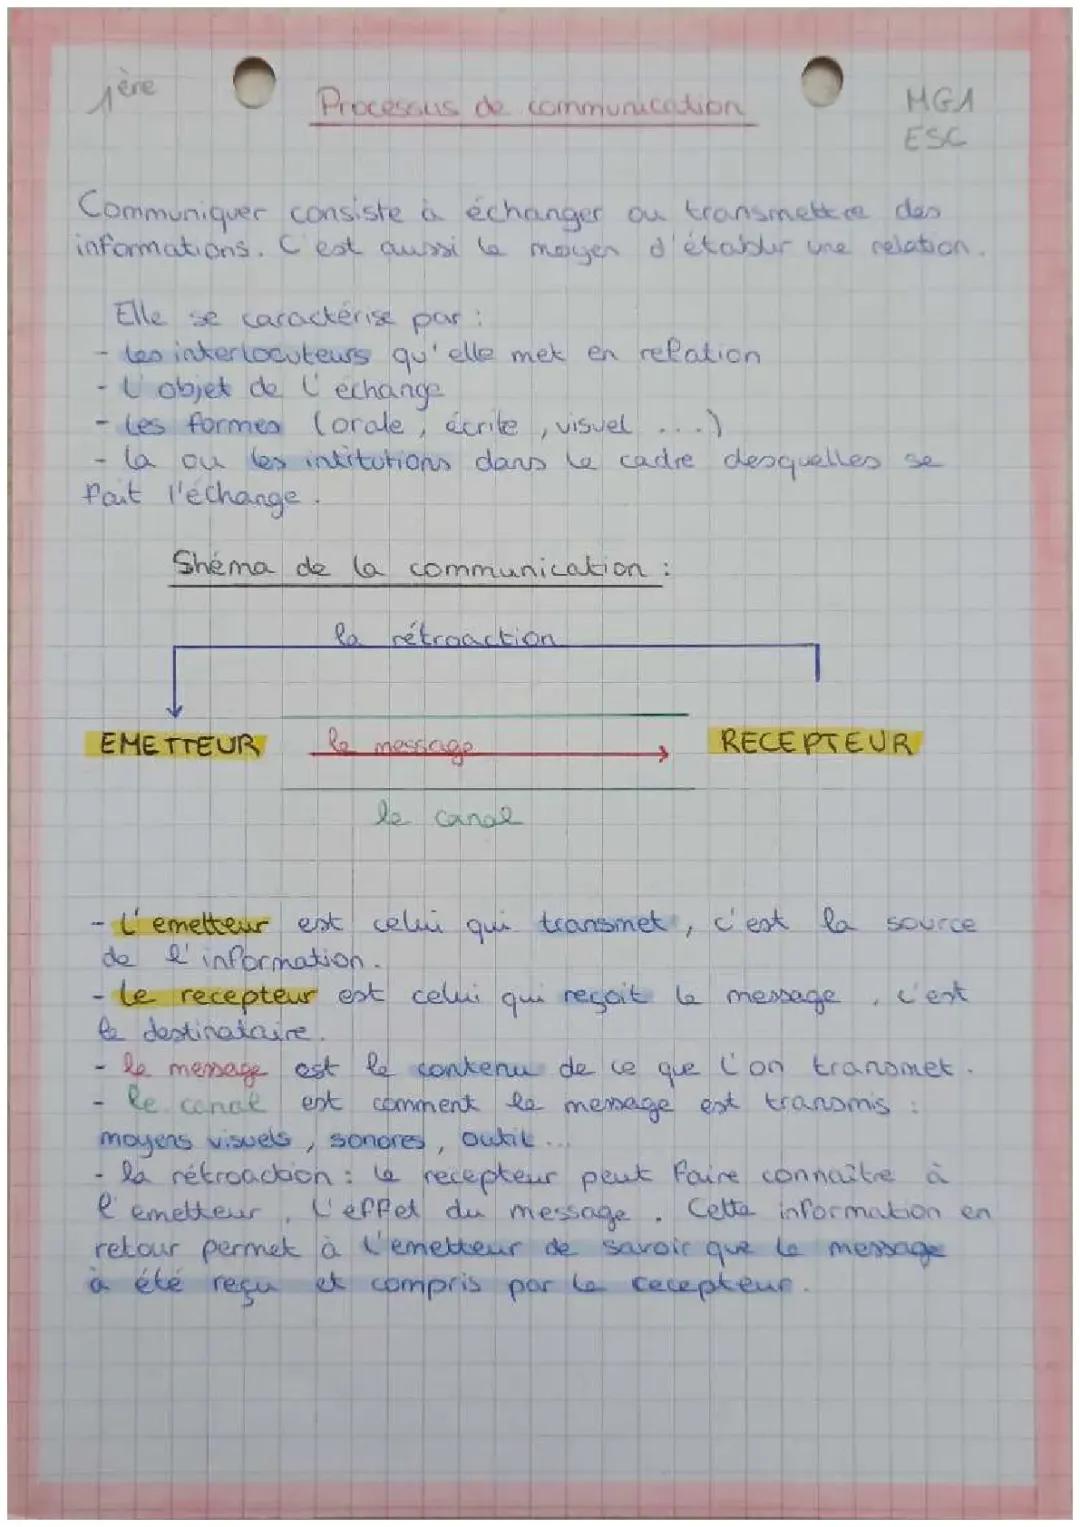 1ère
Processus de communication
MGA
ESC
Communiquer consiste à échanger ou transmettre des
informations. C'est aussi le moyen d'établir une relation.
Elle se caractérise par :
- les interlocuteurs qu'elle met en relation
- L'objet de l'échange
- Les formes (orale, écrite, visuel ...)
- la ou les intitutions dans le cadre desquelles se
fait l'échange.
Shéma de la communication :
la rétroaction
EMETTEUR le message RECEPTEUR
le canal
- L'emetteur est celui qui transmet, c'est la source
de l'information.
- Le recepteur est celui qui reçoit le message, c'est
le destinataire.
- le message est le contenu de ce que l'on transmet.
- le canal est comment le message est transmis :
moyens visuels, sonores, outil...
- la rétroaction : le recepteur peut faire connaître à
l'emetteur, l'effet du message. Cette information en
retour permet à l'emetteur de savoir que le message
à été reçu et compris par le recepteur.